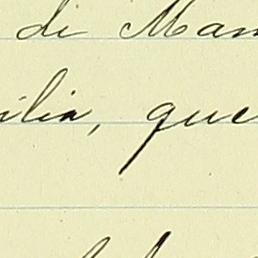 di Man
ilia, que